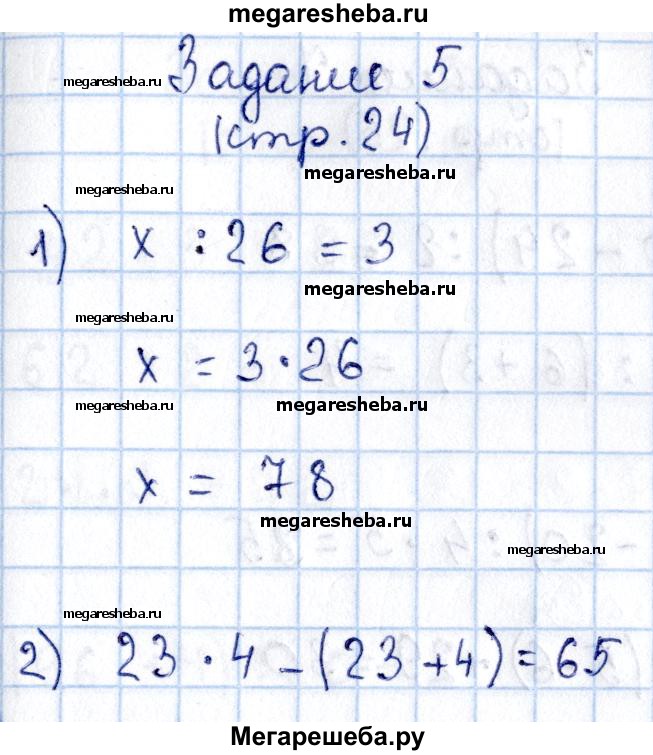 megaresheba.ru
Задание 5
megaresheba.ru
(стр. 24)
megaresheba.ru
megaresheba.ru
1) x : 26 = 3
megaresheba.ru
megaresheba.ru
x = 3 · 26
megaresheba.ru
megaresheba.ru
x = 78
megaresheba.ru
megaresheba.ru
megaresheba.ru
2) 23 · 4 - (23 + 4) = 65
Мегарешеба.ру